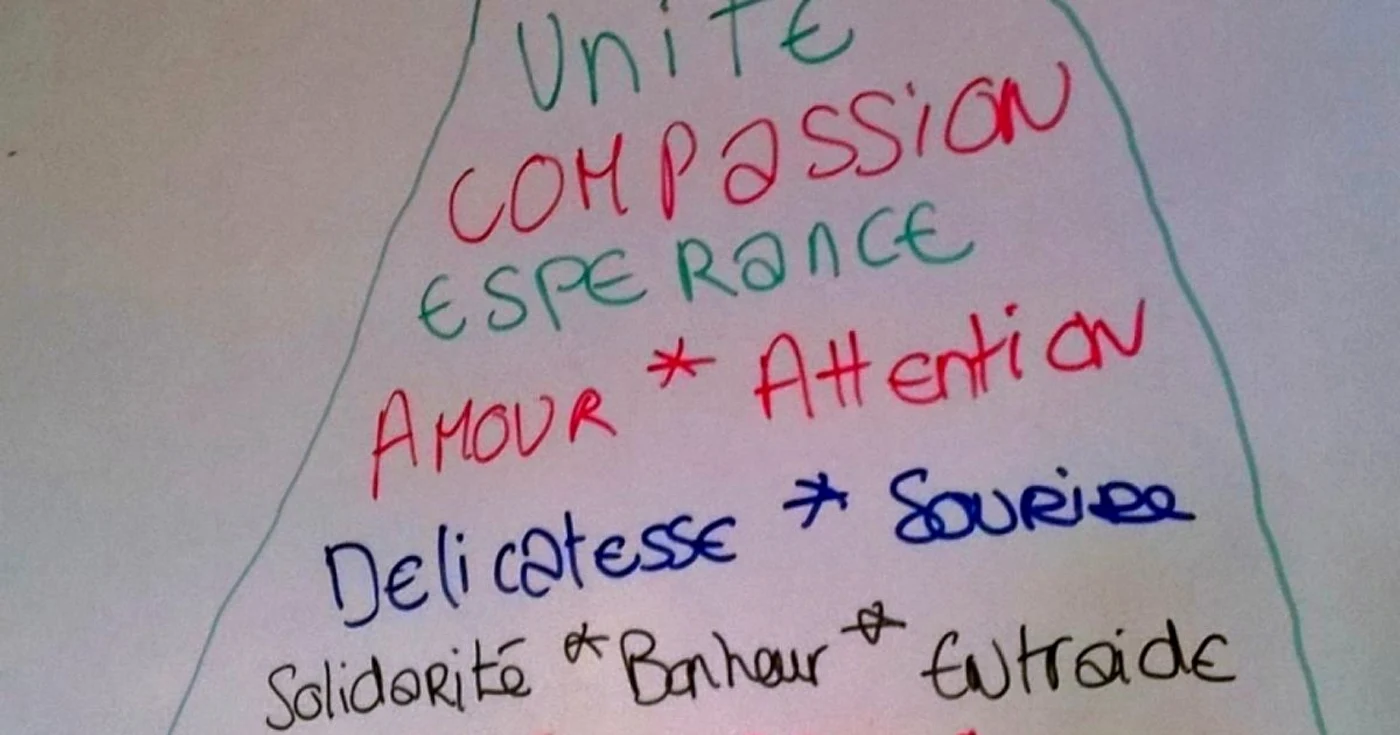 UNITE
COMPASSION
ESPERANCE
AMOUR * Attention
Delicatesse * Sourire
Solidarité * Bonheur * Entraide